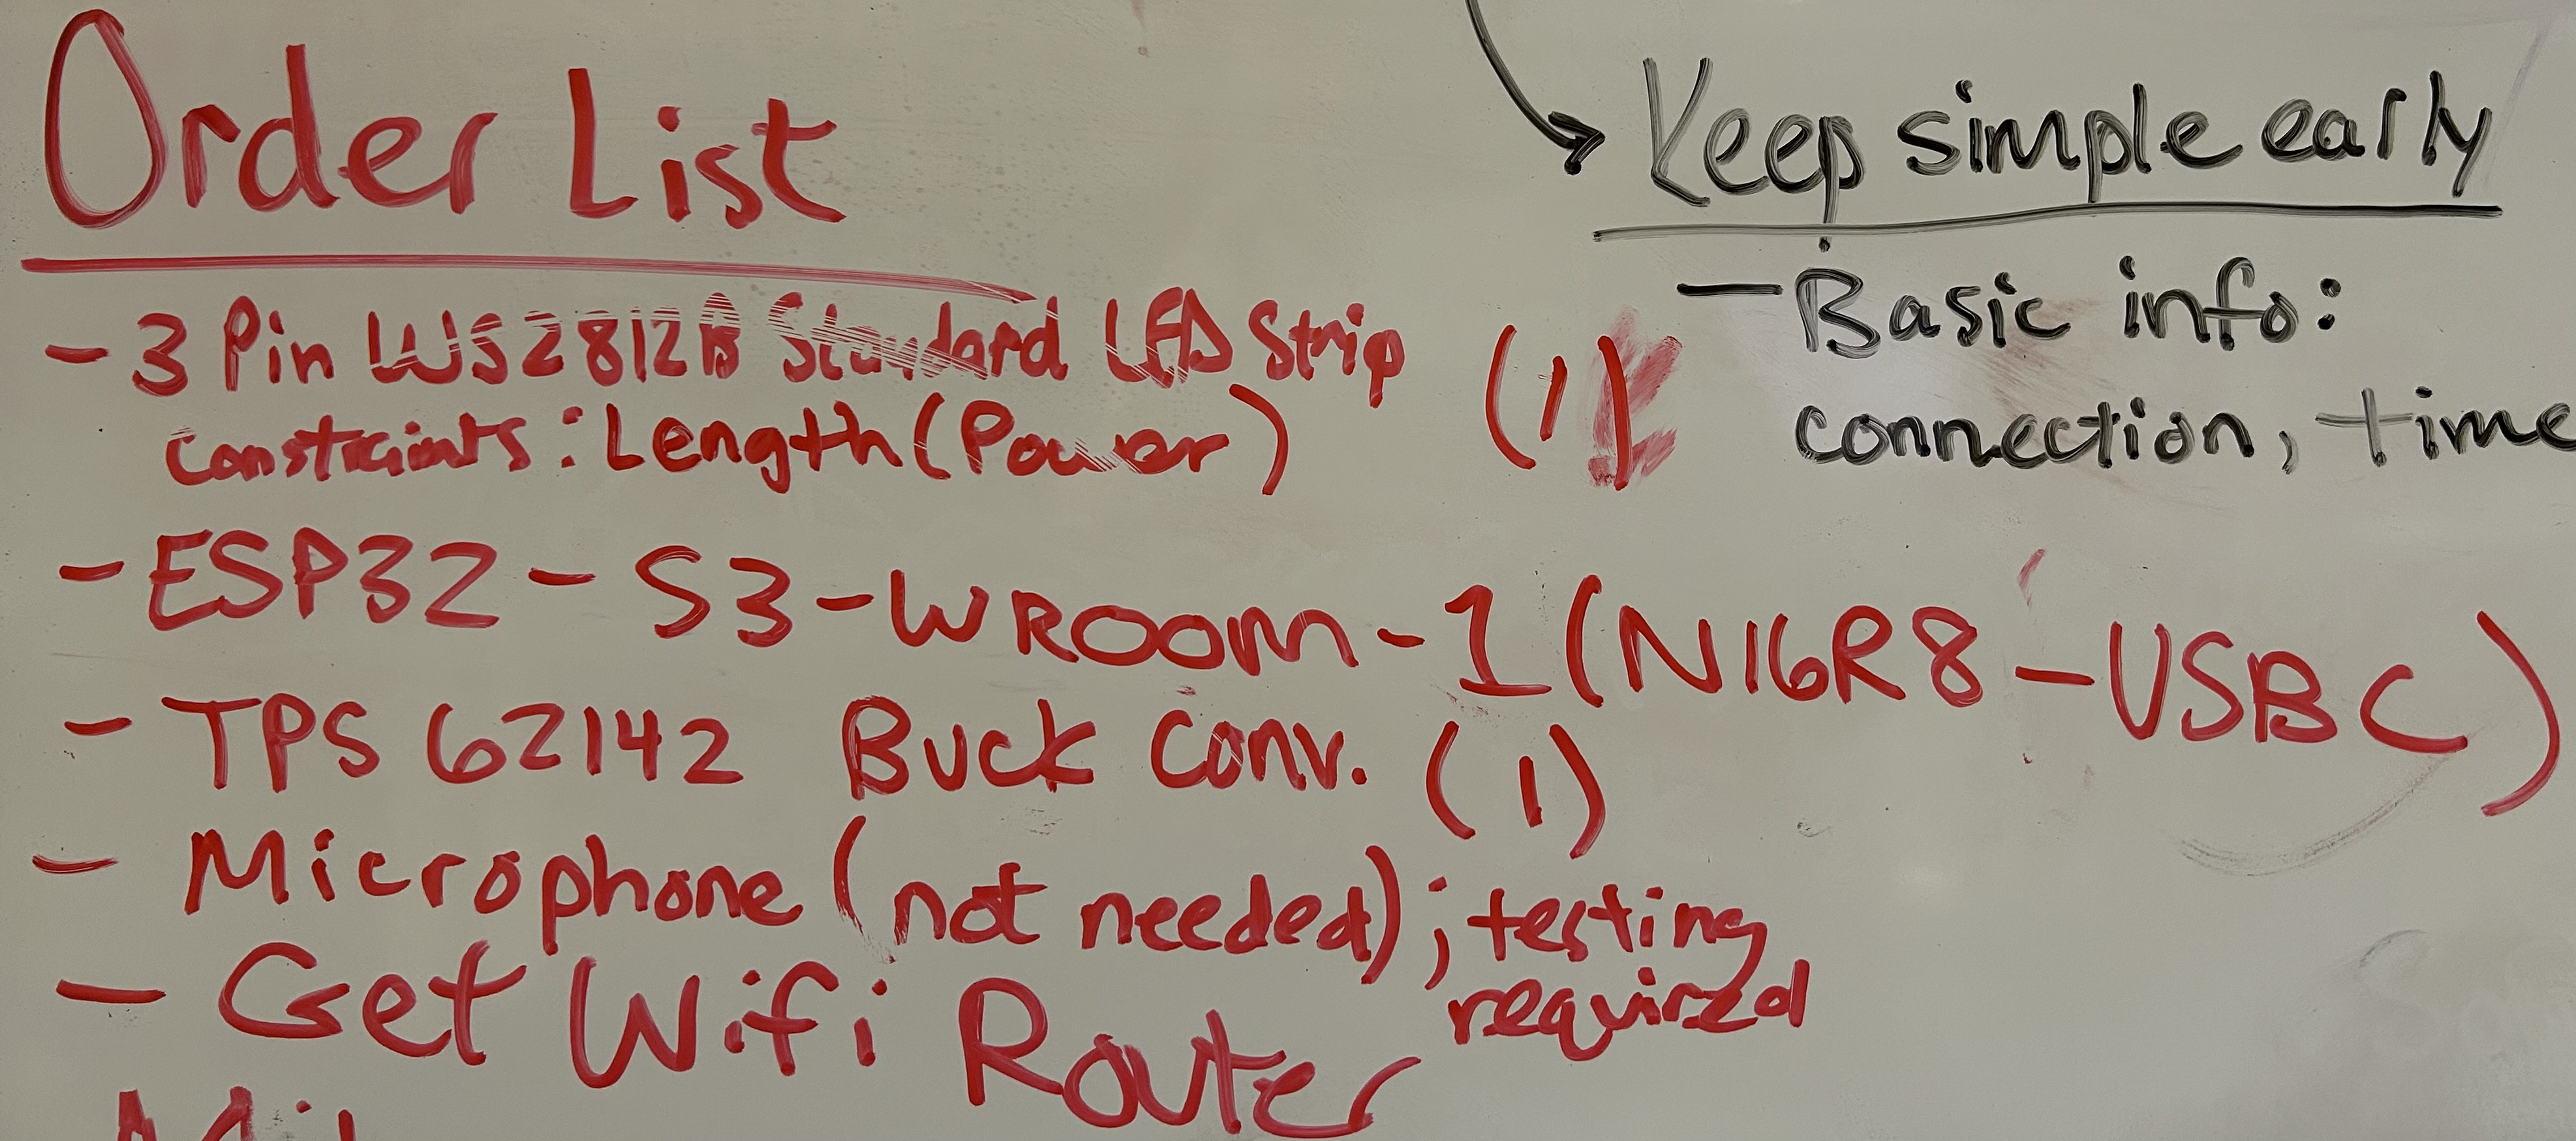 Order List
- 3 Pin WS2812B Standard LED Strip (1)
constraints: Length (Power)
- ESP32-S3-WROOM-1 (N16R8-USBC)
- TPS 62142 Buck Conv. (1)
- Microphone (not needed); testing
required
- Get Wifi Router
Keep simple early
- Basic info:
connection, time